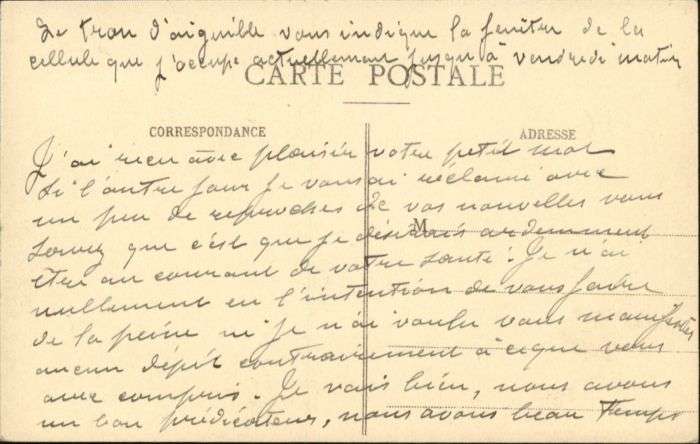 Le trou d'aiguille vous indique la fenêtre de la
cellule que j'occupe actuellement jusqu'à vendredi matin
CARTE POSTALE
CORRESPONDANCE
ADRESSE
J'ai reçu avec plaisir votre petit mot
Si l'autre jour je vous ai réclamé avec
un peu de reproches de vos nouvelles vous
savez que c'est que je désirais ardemment
M
être au courant de votre santé : Je n'ai
nullement eu l'intention de vous faire
de la peine ni je n'ai voulu vous manifester
aucun dépit contrairement à ce que vous
avez compris. Je vais bien, nous avons
un bon prédicateur, nous avons beau temps